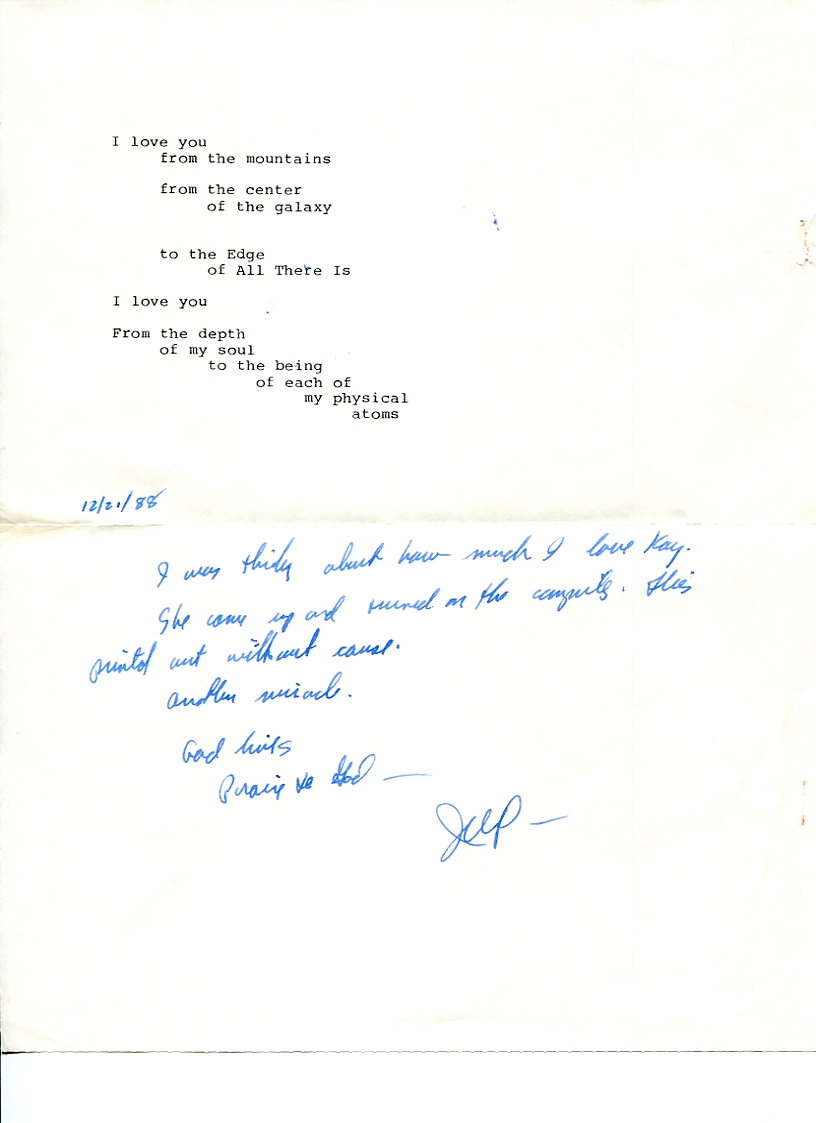 I love you
from the mountains
from the center
of the galaxy
to the Edge
of All There Is
I love you
From the depth
of my soul
to the being
of each of
my physical
atoms
12/21/88
I was thinking about how much I love Kay.
She came up and turned on the computer. This
printed out without cause.
Another miracle.
God lives
Praise God —